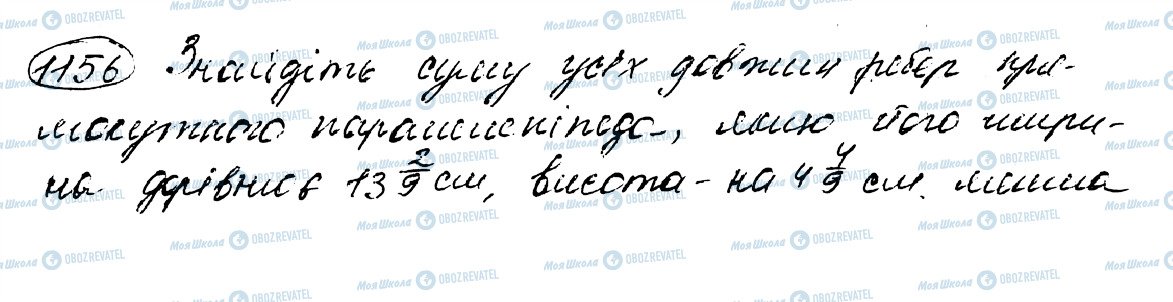 1156 Знайдіть суму усіх довжин ребер пря-
мокутного паралелепіпеда, якщо його шири-
на дорівнює 13 2/9 см, висота - на 4 4/9 см менша
Моя Школа OBOZREVATEL